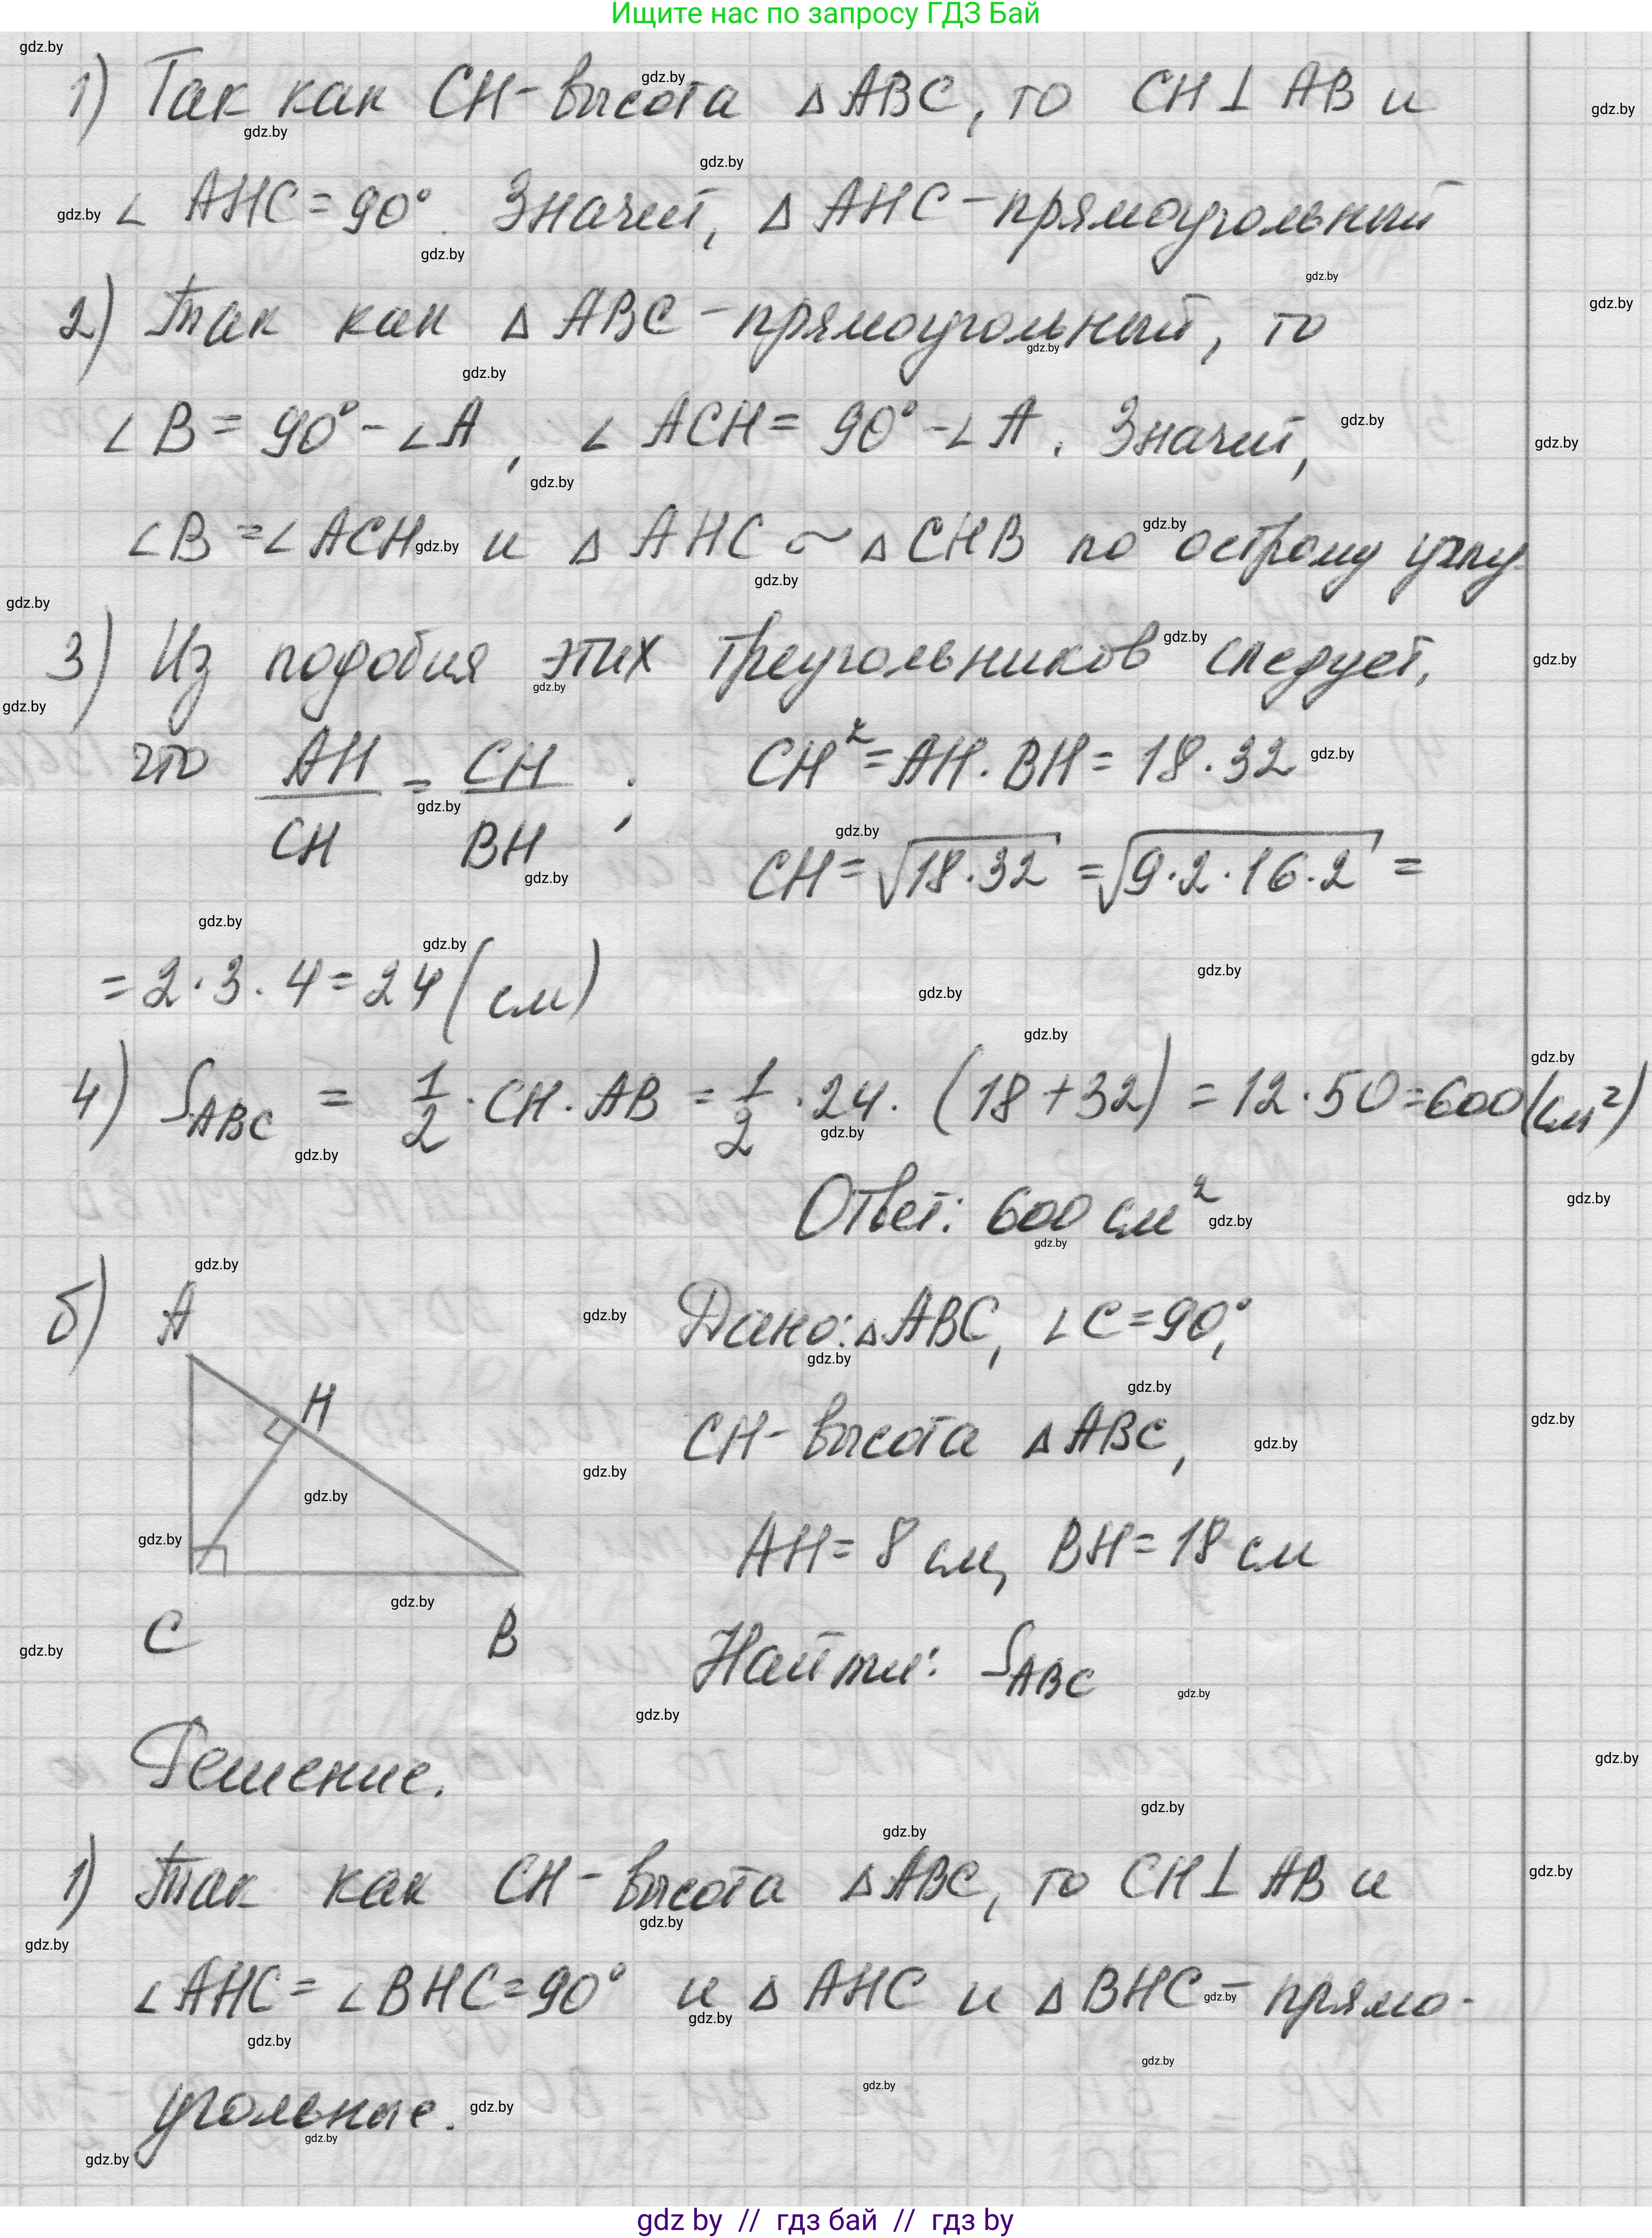 Ищите нас по запросу ГДЗ Бай
1) Так как CH - высота △ABC, то CH⊥AB и
∠AHC = 90°. Значит, △AHC - прямоугольный
2) Так как △ABC - прямоугольный, то
∠B = 90° - ∠A, ∠ACH = 90° - ∠A. Значит,
∠B = ∠ACH и △AHC ~ △CHB по острому углу.
3) Из подобия этих треугольников следует,
что AH/CH = CH/BH; CH² = AH · BH = 18 · 32
CH = √(18·32) = √(9·2·16·2) =
= 2·3·4 = 24 (см)
4) S_ABC = 1/2 · CH · AB = 1/2 · 24 · (18 + 32) = 12 · 50 = 600 (см²)
Ответ: 600 см²
б) A
H
C B
Дано: △ABC, ∠C = 90°,
CH - высота △ABC,
AH = 8 см, BH = 18 см
Найти: S_ABC
Решение.
1) Так как CH - высота △ABC, то CH⊥AB и
∠AHC = ∠BHC = 90° и △AHC и △BHC - прямо-
угольные.
gdz by // гдз бай // гдз by